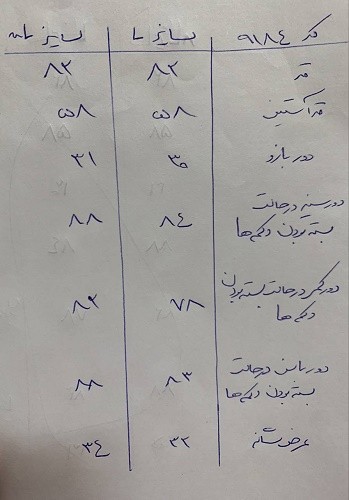 کد ۹۱۸۴ سایز سایز
قد ۸۳ ۸۳
قد آستین ۵۸ ۵۸
دور بازو ۳۰ ۳۱
دور سینه در حالت
بسته بودن دکمه ها ۸۴ ۸۸
دور کمر در حالت بسته بودن
دکمه ها ۷۸ ۸۲
دور باسن در حالت
بسته بودن دکمه ها ۸۳ ۸۸
عرض شانه ۳۳ ۳۴